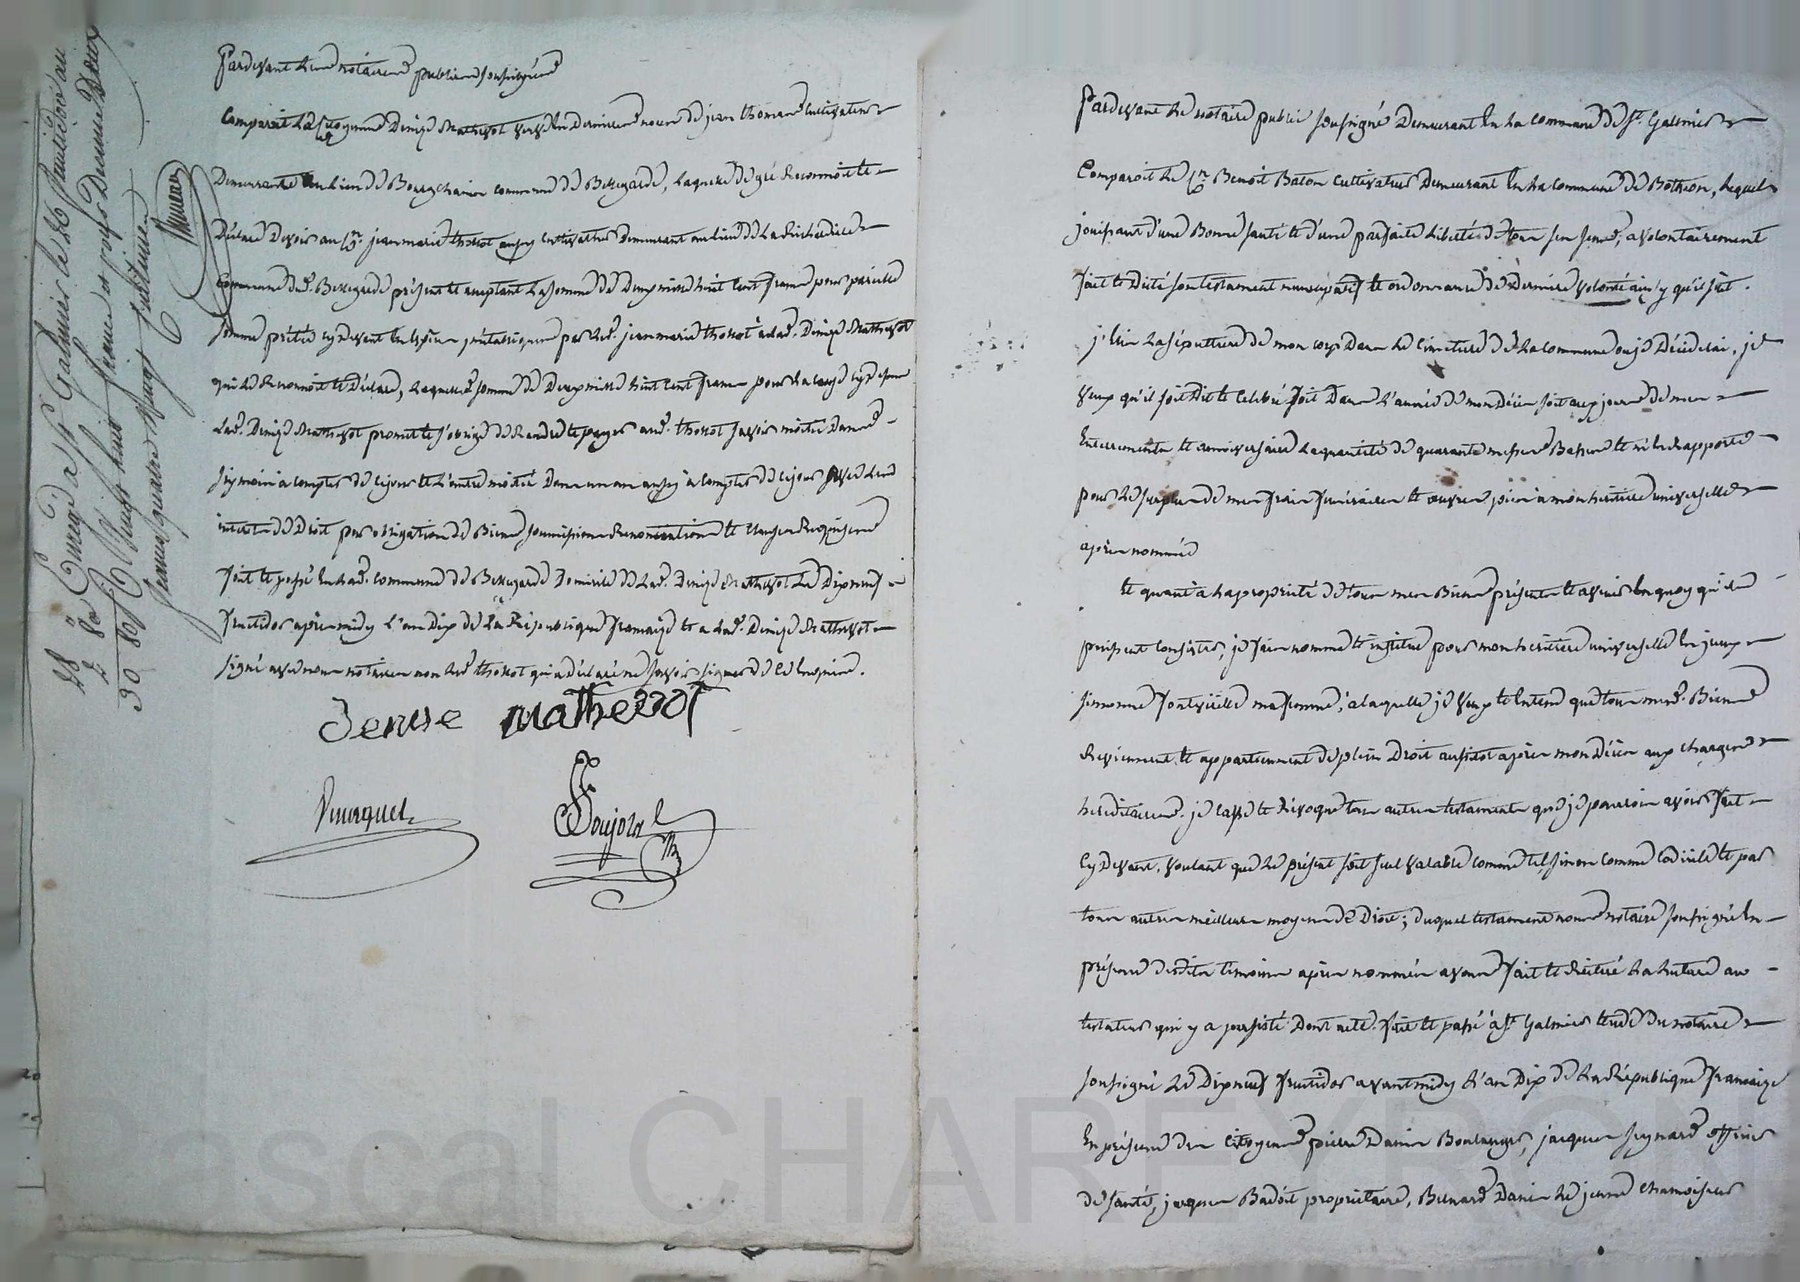 Pardevant les notaires publics soussignés
Comparoit La Citoyenne Denise Mathevot veuve en dernieres noces de jean thomas Cultivateur
Demeurante au lieu de Bourgchanin commune de Bellegarde, laquelle de gré Reconnoit et
Déclare Devoir au Cen. jean marie thollot aussy Cultivateur Demeurant au lieu de La Richaudiere
Commune dud. Bellegarde présent et acceptant La somme de Deux mille huit Cent francs pour pareille
somme prêtée cy devant en espèces par led. jean marie thollot a lad. Denise Mathevot
qui le Reconnoit et Déclare, Laquelle somme de Deux mille huit Cent francs pour la cause cy dessus
Lad. Denise Mathevot promet et s'oblige de Rendre et payer aud. thollot savoir moitié Dans
six mois a compter de ce jour et L'autre moitié Dans un an aussy à compter de ce jour avec les
interets de Droit par obligation de Biens, soumissions Renonciations et Clauses Requises
fait et passé en lad. commune de Bellegarde Domicile de Lad. Denise Mathevot Le Dix neuf
fructidor après midy L'an Dix de La République française et a Lad. Denise Mathevot
signé avec nous notaires non led. thollot qui a déclaré ne savoir signer de ce enquis.
Denise mathevot
Pourquet
Boujol
Enregé a St Galmier le 26 fructidor an
Dix Vingt huit francs et pour Decime Deux
francs quatre Vingt Centimes
28 "
2 80
30 80
Pardevant Le notaire public soussigné Demeurant en La commune de St. Galmier
Comparoit Le Cen Benoit Baton Cultivateur Demeurant en La commune de Botheon, lequel
jouissant d'une Bonne santé et d'une parfaite Liberté de tous ses sens, a volontairement
fait et Dicté son testament nuncupatif et ordonnance de Dernière volonté ainsy qu'il suit.
j'élis La sépulture de mon corps Dans Le Cimetiere de La commune où je Décéderai, je
veux qu'il soit Dit et Célébré soit Dans L'année de mon Décès soit aux jours de mes
Enterrements et anniversaire La quantité de quarante messes Basses et m'en Rapporte
pour Le surplus de mes frais funéraires et œuvres pies à mon héritiere universelle
après nommée
et quant à La propriété de tous mes Biens présents et avenir en quoy qu'ils
puissent Consister, je fais nomme et institue pour mon héritiere universelle en jceux
simonne fontvielle ma femme, a laquelle je veux et Entend que tous mesd. Biens
Reviennent et appartiennent de plein Droit aussitot après mon Décès aux charges
héréditaires. je Casse et Révoque tous autres testaments que je pourrois avoir fait
Cy Devant, voulant que Le présent soit seul valable comme tel, sinon comme Codicile et par
tous autres meilleurs moyens de Droit; duquel testament nous notaire soussigné en
présence desdits témoins après nommés avons fait et Réitéré La Lecture au
testateur qui y a persisté Dont acte. fait et passé à St. Galmier étude du notaire
soussigné Le Dix neuf fructidor avant midy L'an Dix de La République française
En présence des Citoyens pierre Danis Boulanger, jacques seynard officier
de santé, jacques Badoit propriétaire, Bernard Danis Le jeune chamoiseur
Pascal CHAREYRON